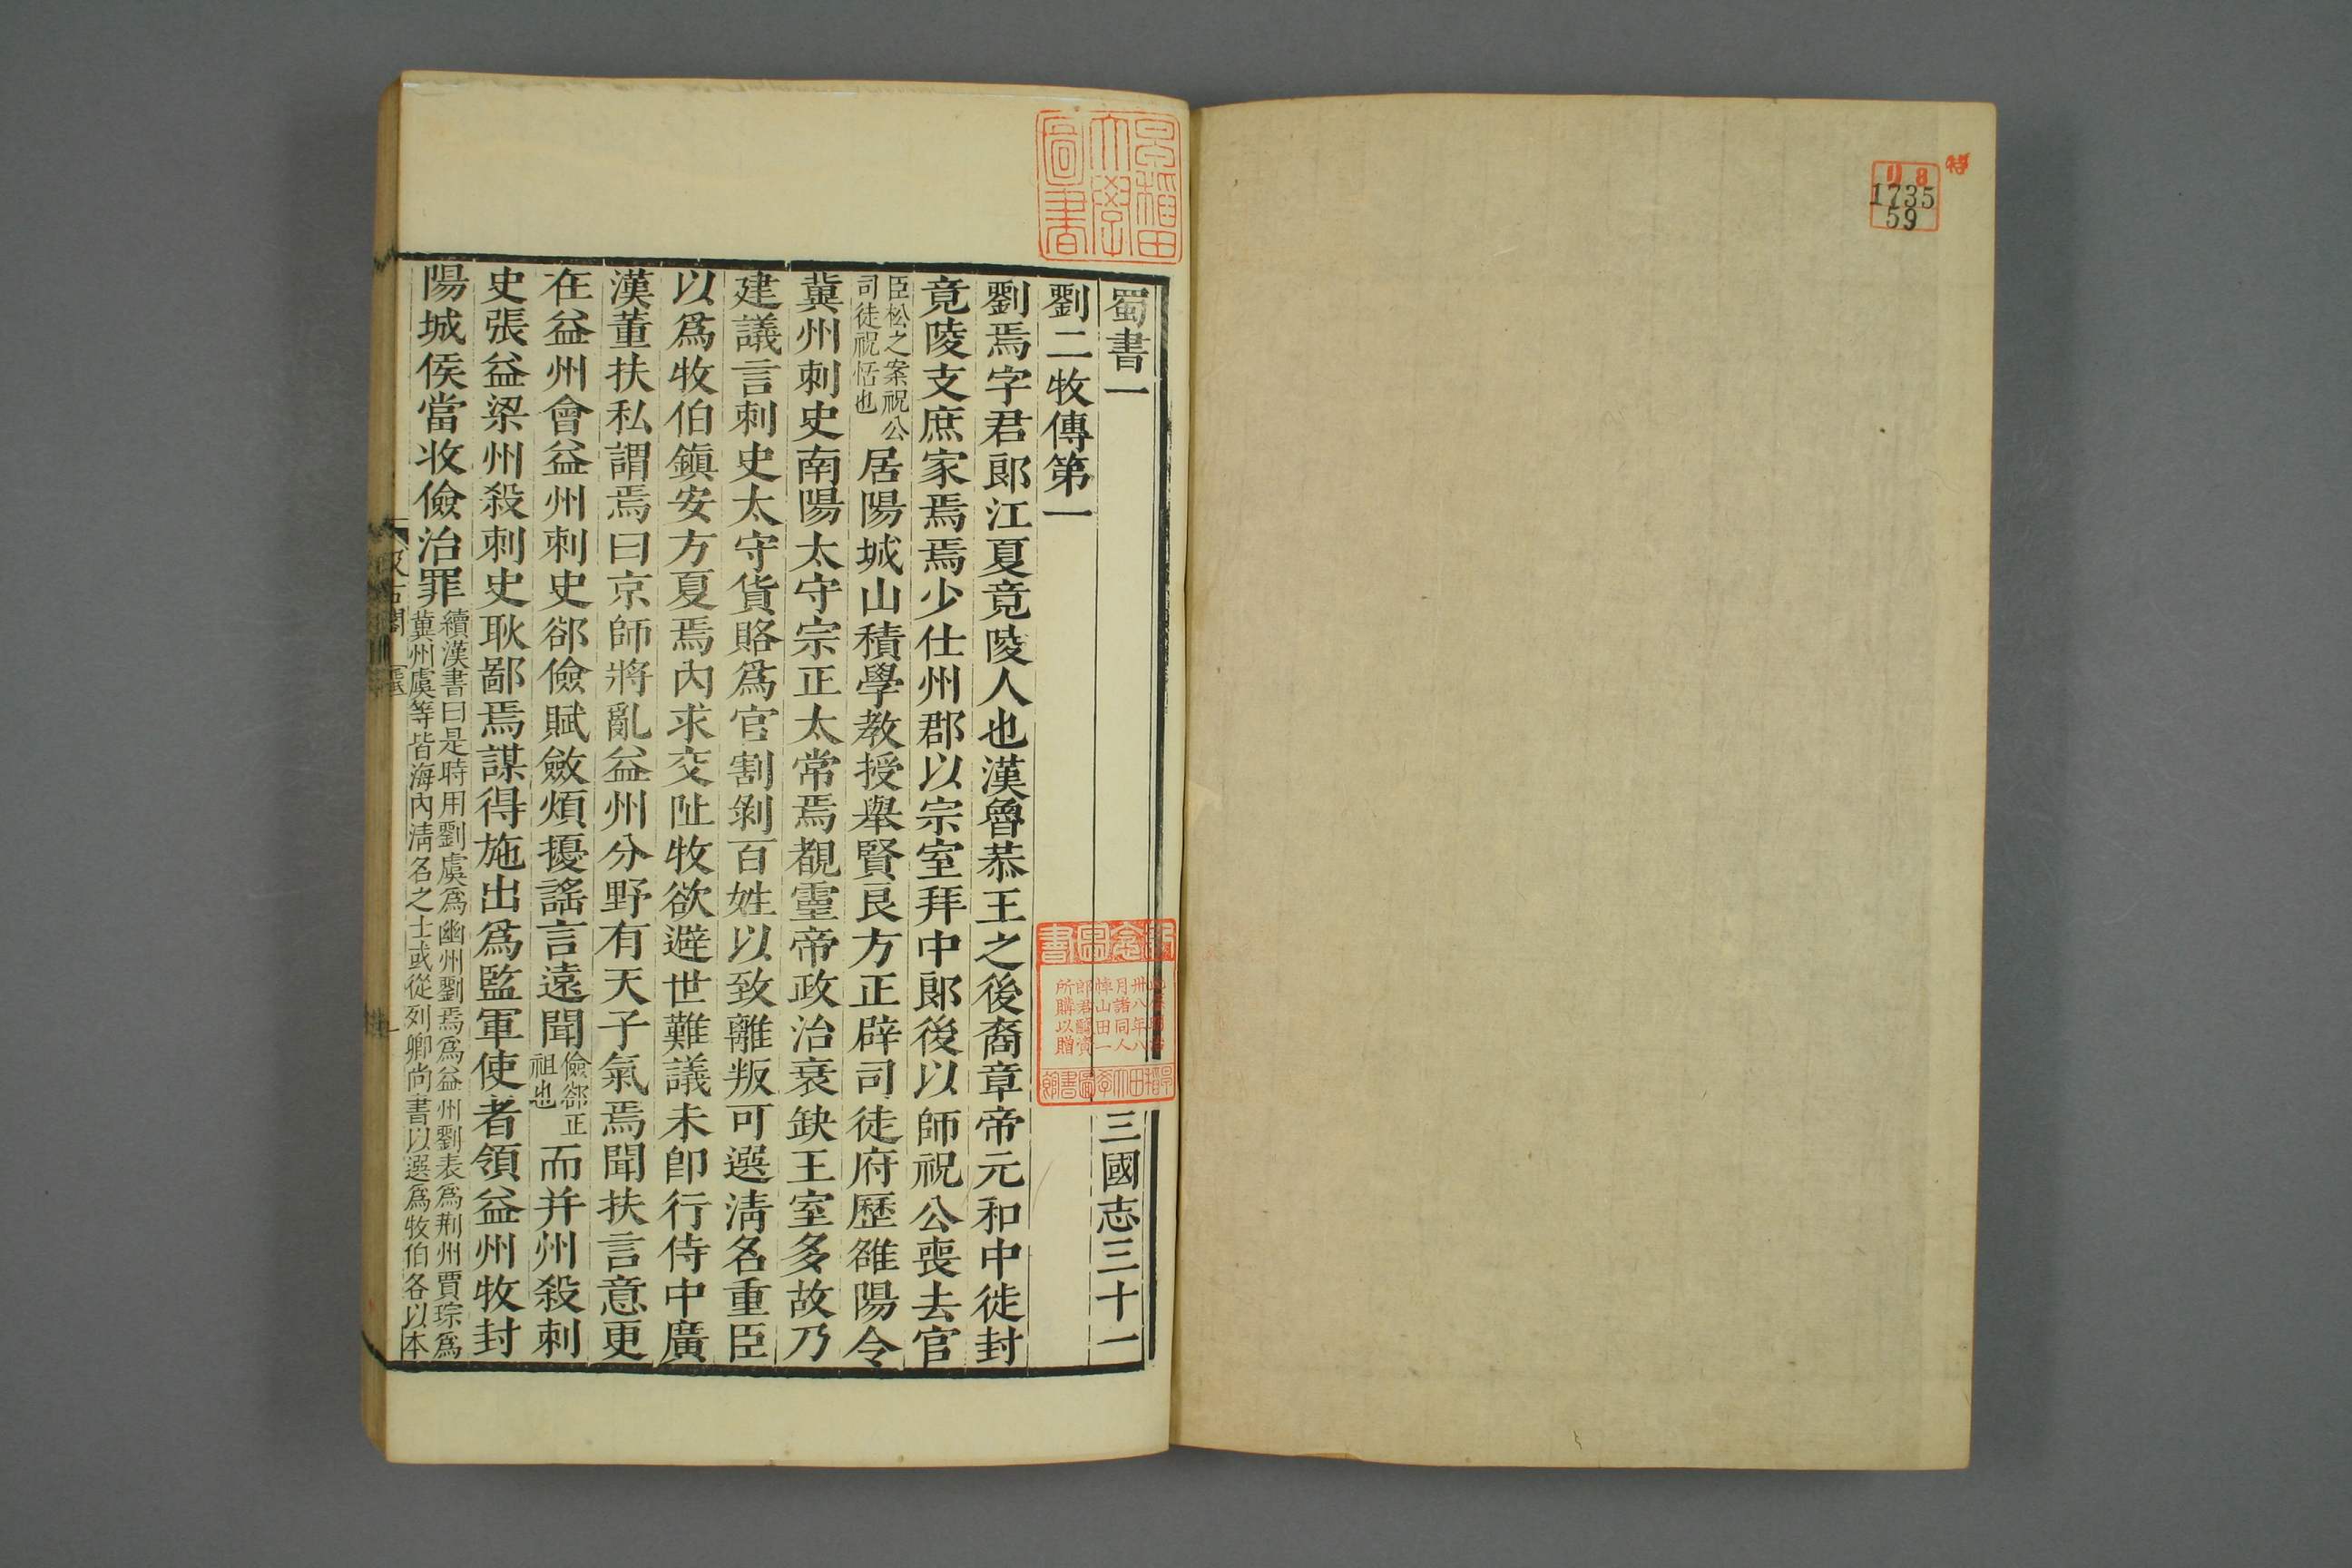 特
リ 8
1735
59
早稲田大學圖書
蜀書一 三國志三十一
劉二牧傳第一
劉焉字君郎江夏竟陵人也漢魯恭王之後裔章帝元和中徙封
竟陵支庶家焉焉少仕州郡以宗室拜中郎後以師祝公喪去官
臣松之案祝公
司徒祝恬也
居陽城山積學教授舉賢良方正辟司徒府歷雒陽令
冀州刺史南陽太守宗正太常焉覩靈帝政治衰缺王室多故乃
建議言刺史太守貨賂爲官割剝百姓以致離叛可選清名重臣
以爲牧伯鎭安方夏焉內求交阯牧欲避世難議未卽行侍中廣
漢董扶私謂焉曰京師將亂益州分野有天子氣焉聞扶言意更
在益州會益州刺史郤儉賦斂煩擾謠言遠聞
儉郤正
祖也
而并州殺刺
史張益梁州殺刺史耿鄙焉謀得施出爲監軍使者領益州牧封
陽城侯當收儉治罪
續漢書曰是時用劉虞爲幽州劉焉爲益州劉表爲荆州賈琮爲
冀州虞等皆海內淸名之士或從列卿尙書以選爲牧伯各以本